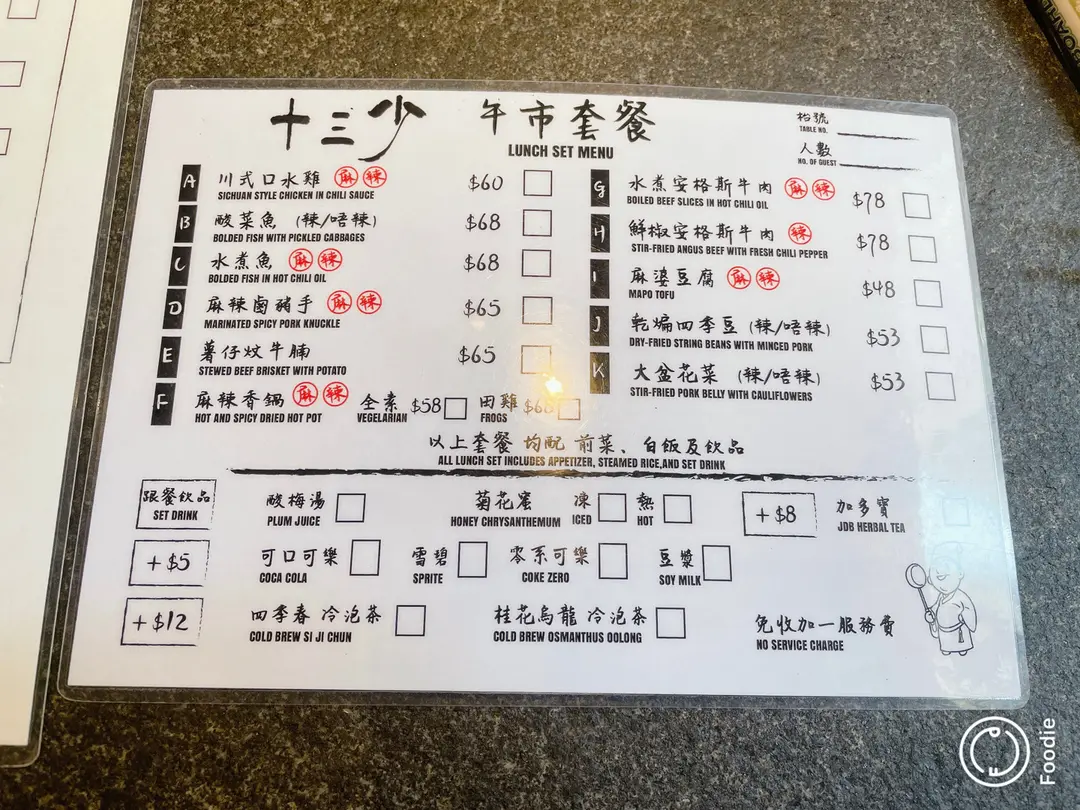 十三少 午市套餐
LUNCH SET MENU
枱號
TABLE NO.
人數
NO. OF GUEST
A 川式口水雞 麻 辣 $60
SICHUAN STYLE CHICKEN IN CHILI SAUCE
B 酸菜魚 (辣/唔辣) $68
BOLDED FISH WITH PICKLED CABBAGES
C 水煮魚 麻 辣 $68
BOLDED FISH IN HOT CHILI OIL
D 麻辣鹵豬手 麻 辣 $65
MARINATED SPICY PORK KNUCKLE
E 薯仔炆牛腩 $65
STEWED BEEF BRISKET WITH POTATO
F 麻辣香鍋 麻 辣 全素 $58 田雞
HOT AND SPICY DRIED HOT POT VEGELARIAN FROGS
G 水煮安格斯牛肉 麻 辣 $78
BOILED BEEF SLICES IN HOT CHILI OIL
H 鮮椒安格斯牛肉 辣 $78
STIR-FRIED ANGUS BEEF WITH FRESH CHILI PEPPER
I 麻婆豆腐 麻 辣 $48
MAPO TOFU
J 乾煸四季豆 (辣/唔辣) $53
DRY-FRIED STRING BEANS WITH MINCED PORK
K 大盆花菜 (辣/唔辣) $53
STIR-FRIED PORK BELLY WITH CAULIFLOWERS
以上套餐 均配 前菜、白飯及飲品
ALL LUNCH SET INCLUDES APPETIZER, STEAMED RICE,AND SET DRINK
跟餐飲品 酸梅湯 菊花蜜 凍 熱 +$8 加多寶
SET DRINK PLUM JUICE HONEY CHRYSANTHEMUM ICED HOT JDB HERBAL TEA
+$5 可口可樂 雪碧 零系可樂 豆漿
COCA COLA SPRITE COKE ZERO SOY MILK
+$12 四季春 冷泡茶 桂花烏龍 冷泡茶 免收加一服務費
COLD BREW SI JI CHUN COLD BREW OSMANTHUS OOLONG NO SERVICE CHARGE
Foodie